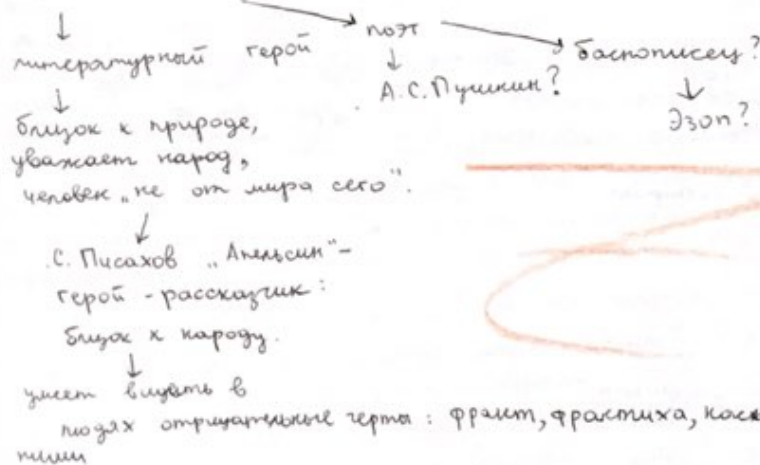 поэт
литературный герой
баснописец?
А.С.Пушкин?
Эзоп?
близок к природе,
уважает народ,
человек „не от мира сего".
С. Писахов „Апельсин"-
герой - рассказчик:
близок к народу.
умеет видеть в
людях отрицательные черты: франт, франтиха,